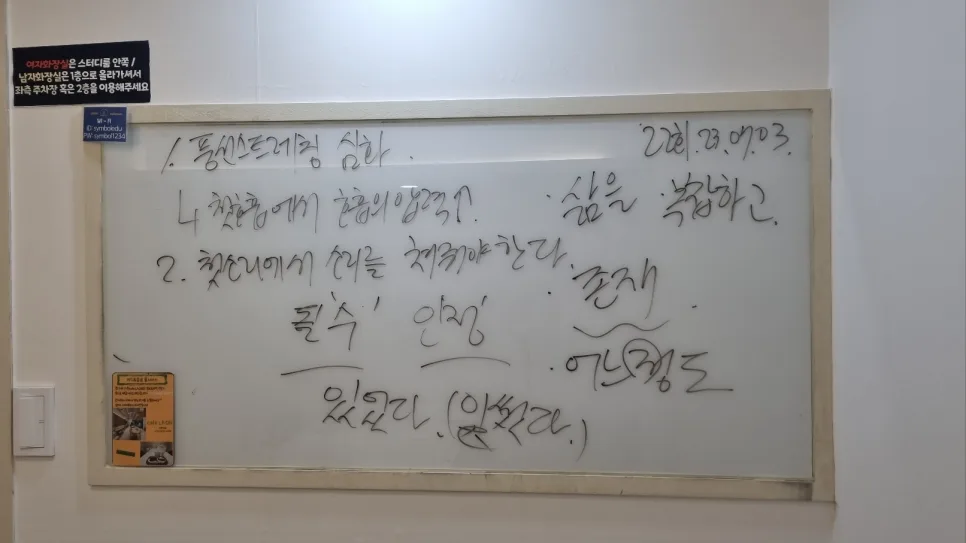 여자화장실은 스터디룸 안쪽 /
남자화장실은 1층으로 올라가셔서
좌측 주차장 혹은 2층을 이용해주세요
Wi-Fi
ID:symboledu
PW:symbol1234
1. 풍선스트레칭 심화.
22회. 23. 07. 03.
ㄴ 첫호흡에서 호흡의 압력↑.
· 삶은 복잡하고.
2. 첫소리에서 소리를 쳐줘야한다.
· 존재.
필'수' 인'정'
· 어느정도
있었다. (있썼다.)